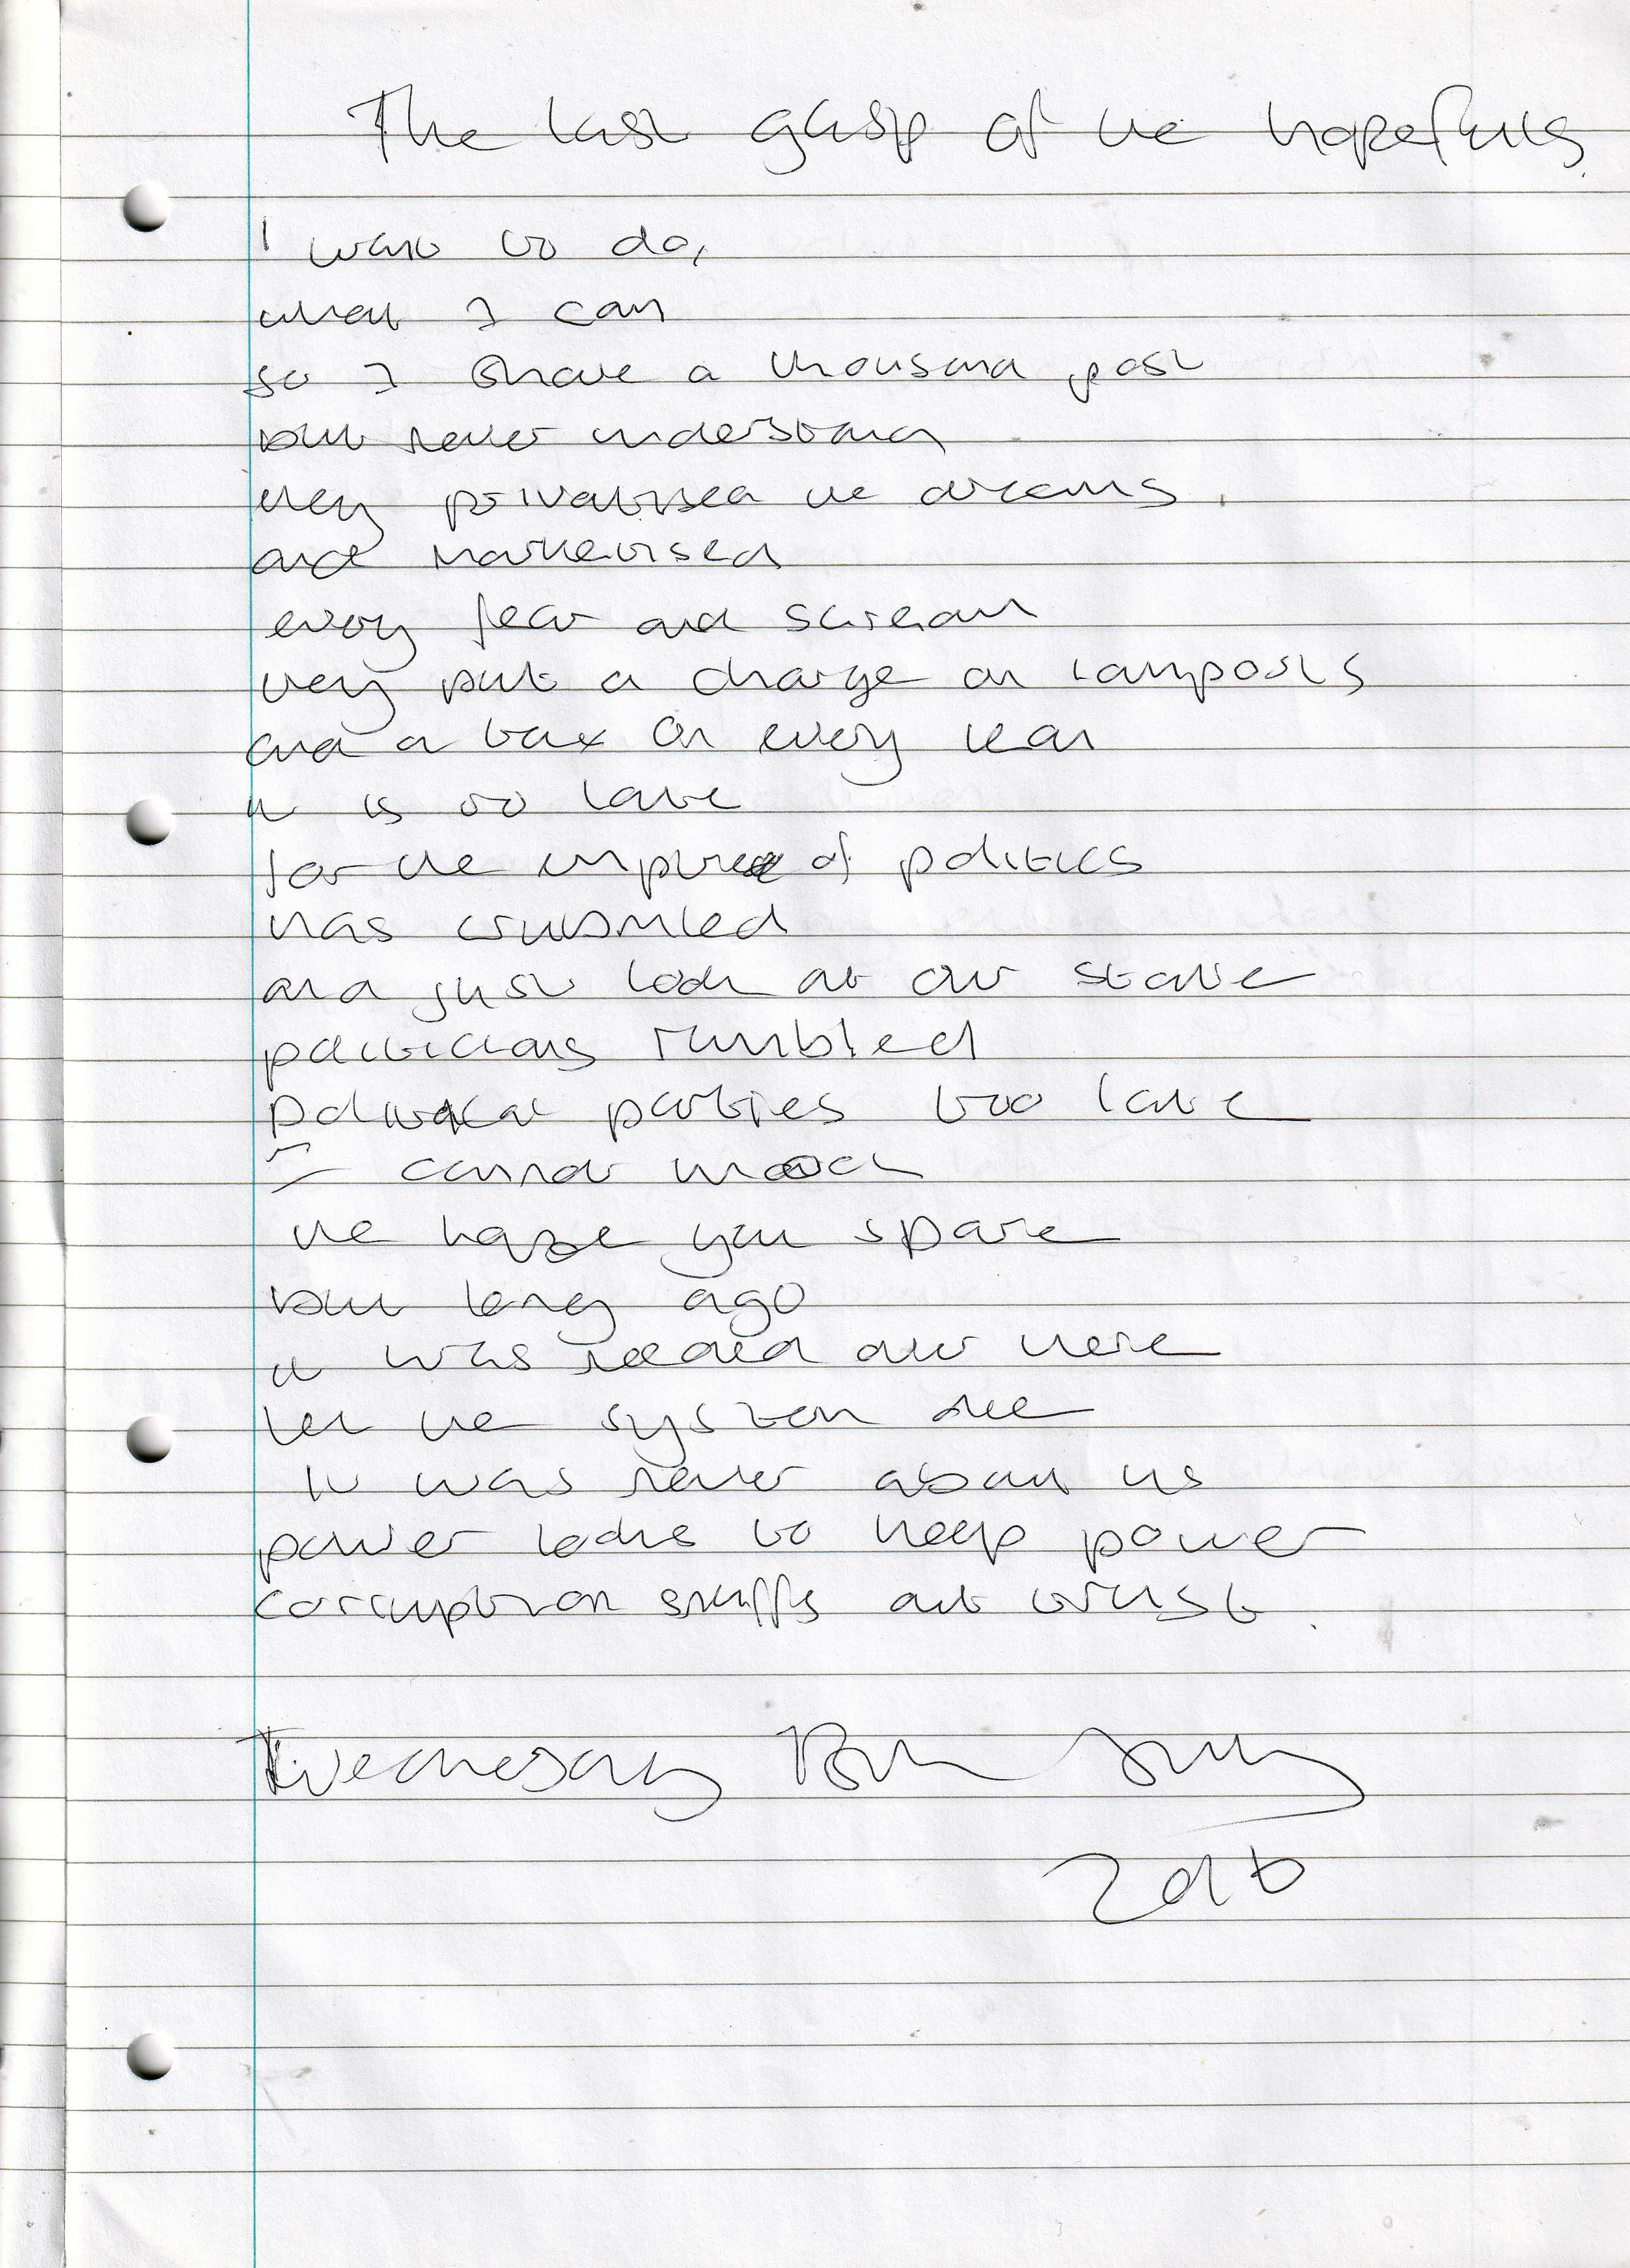 The last gasp of the hopefuls
I want to do,
what I can
so I share a thousand post
but never understand
they privatised the dreams
and marketised
every fear and scream
they put a charge on lampposts
and a tax on every tear
it is too late
for the empire of politics
has crumbled
and just look at our state
politicians rumbled
political parties too late
I cannot
the hope you spare
but long ago
it was needed over here
let the system die
it was never about us
power looks to keep power
corruption snuffs out trust.
Wednesday
2016